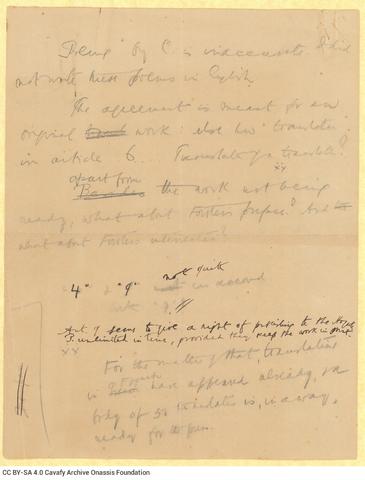 "Being" by C. is inaccurate. I did
not write these poems in English.
The agreement is meant for an
original work: else how "translate"
in article 6. Translate a translation?
xx
apart from
Besides the work not being
ready, what about Forster's preface? And
what about Forster's interests?
not quite
"4" & "9" not in accord
with "9" //
Art 9 seems to give a right of publishing to the Hogarth
P. unlimited in time, provided they keep the work in print.
xx
For the matter of that translations
in have appeared already, a
body of 50 translated is, in a way,
ready for the press.
CC BY-SA 4.0 Cavafy Archive Onassis Foundation